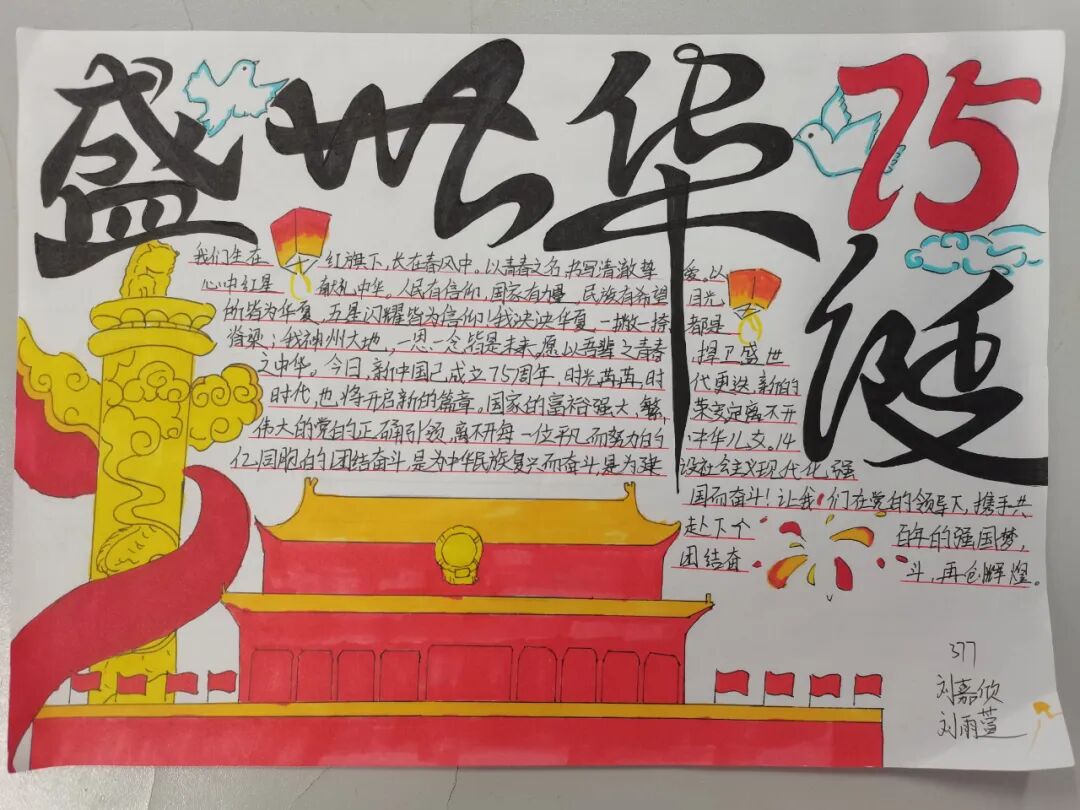 盛世华诞 75
我们生在 红旗下,长在春风中。以青春之名,书写清澈挚 爱。以
心中红星 献礼中华。人民有信仰,国家有力量,民族有希望 目光
所皆为华夏,五星闪耀皆为信仰!我泱泱华夏,一撇一捺 都是
脊梁;我神州大地,一思一念皆是未来。愿以吾辈之青春 捍卫盛世
之中华。今日,新中国已成立75周年,时光苒苒,时 代更迭,新的
时代也将开启新的篇章。国家的富裕强大、繁 荣安定离不开
伟大的党的正确引领,离不开每一位平凡而努力的 中华儿女。14
亿同胞的团结奋斗,是为中华民族复兴而奋斗,是为建 设社会主义现代化强
国而奋斗!让我们在党的领导下,携手共
赴下个 百年的强国梦,
团结奋 斗,再创辉煌。
377
刘嘉欣
刘雨萱